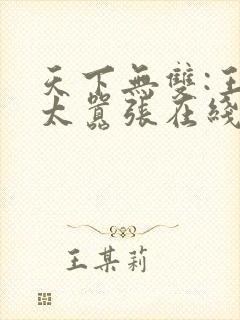 天下無雙:王
太囂張在綫
王某莉